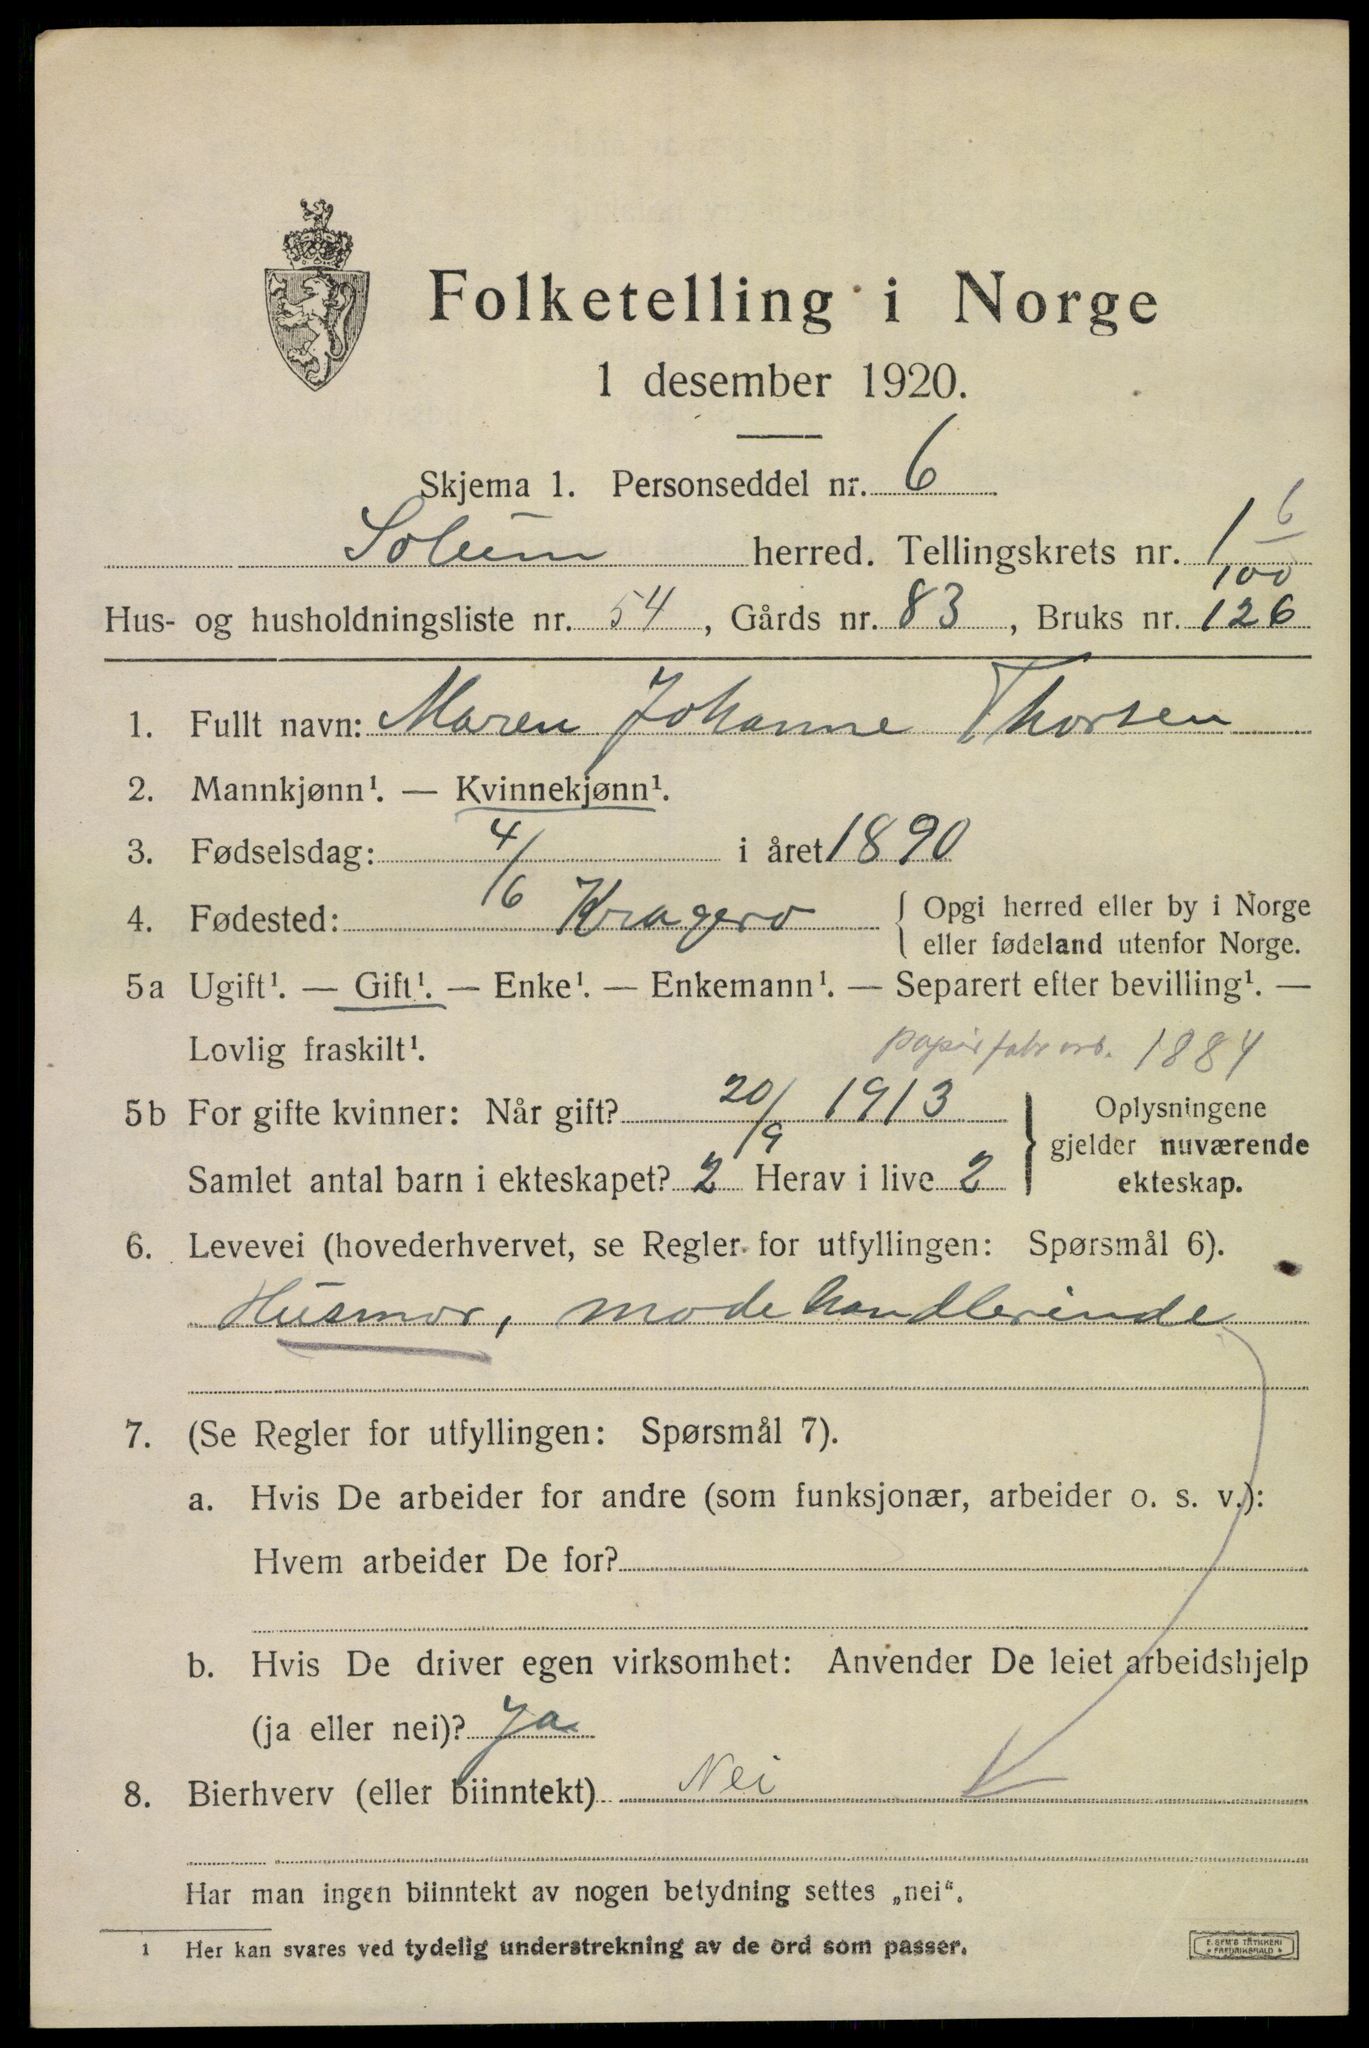 Folketelling i Norge
1 desember 1920.
Skjema 1. Personseddel nr. 6
Solum herred. Tellingskrets nr. 1 6/100
Hus- og husholdningsliste nr. 54, Gårds nr. 83, Bruks nr. 126
1. Fullt navn: Maren Johanne Thorsen
2. Mannkjønn¹. — Kvinnekjønn¹.
3. Fødselsdag: 4/6 i året 1890
4. Fødested: Kragerø { Opgi herred eller by i Norge
eller fødeland utenfor Norge.
5a Ugift¹. — Gift¹. — Enke¹. — Enkemann¹. — Separert efter bevilling¹. —
Lovlig fraskilt¹.
papirfabr arb. 1884
5b For gifte kvinner: Når gift? 20/9 1913 } Oplysningene
gjelder nuværende
Samlet antal barn i ekteskapet? 2 Herav i live 2 ekteskap.
6. Levevei (hovederhvervet, se Regler for utfyllingen: Spørsmål 6).
Husmor, modehandlerinde
7. (Se Regler for utfyllingen: Spørsmål 7).
a. Hvis De arbeider for andre (som funksjonær, arbeider o. s. v.):
Hvem arbeider De for?
b. Hvis De driver egen virksomhet: Anvender De leiet arbeidshjelp
(ja eller nei)? Ja
8. Bierhverv (eller biinntekt) Nei
Har man ingen biinntekt av nogen betydning settes „nei“.
1 Her kan svares ved tydelig understrekning av de ord som passer.
E. SEM'S TRYKKERI
* FREDRIKSHALD *